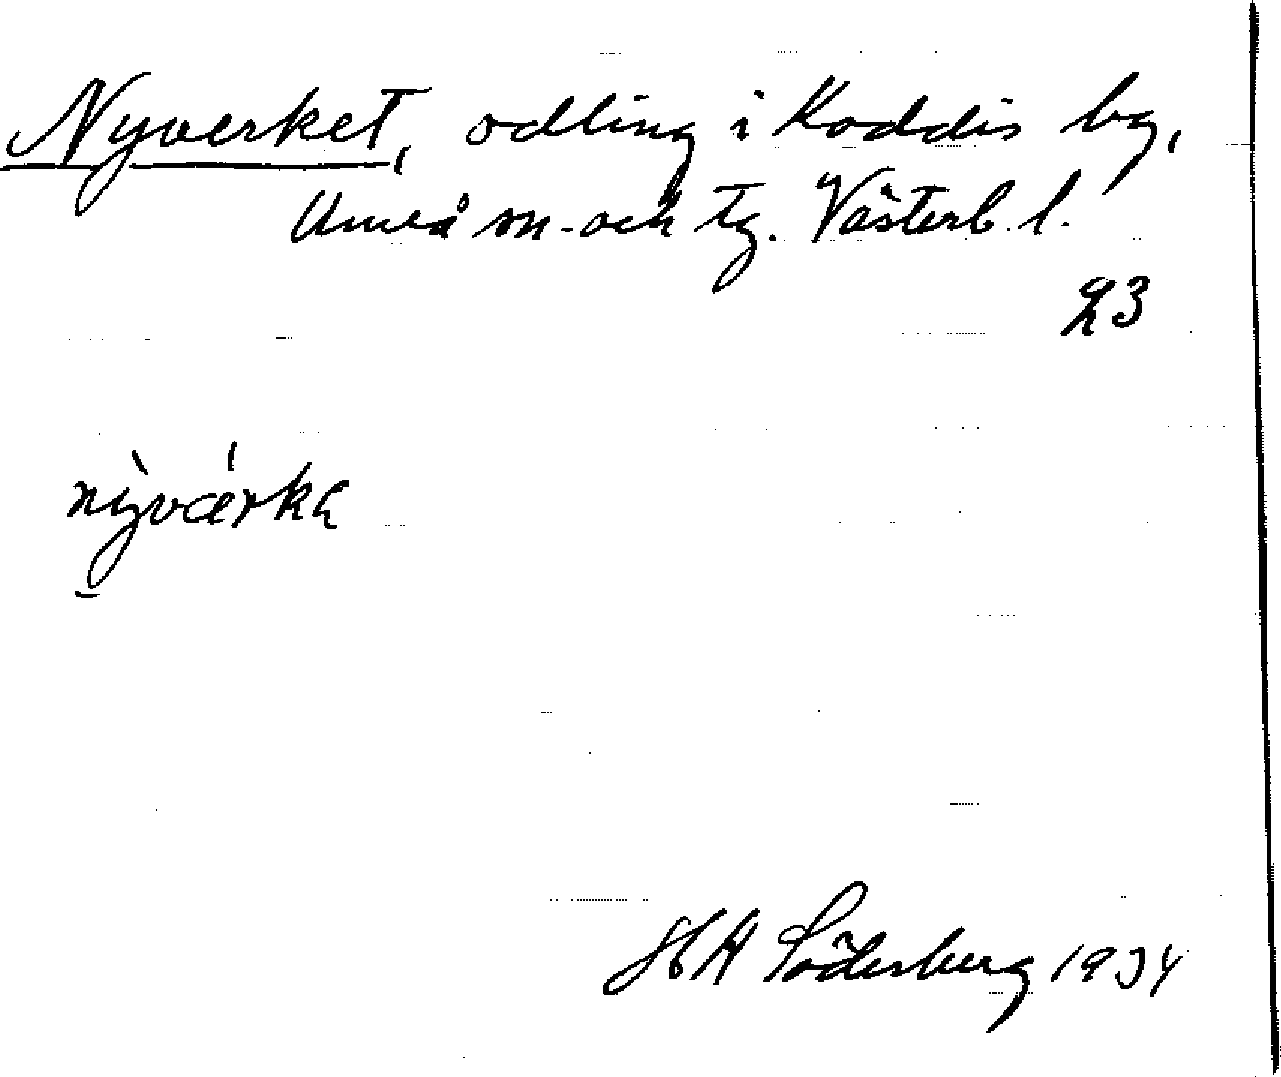 Nyverket, odling i Koddis by,
Umeå sn. och tg. Västerb. l.
23
nỳvárka
HA Söderberg 1934